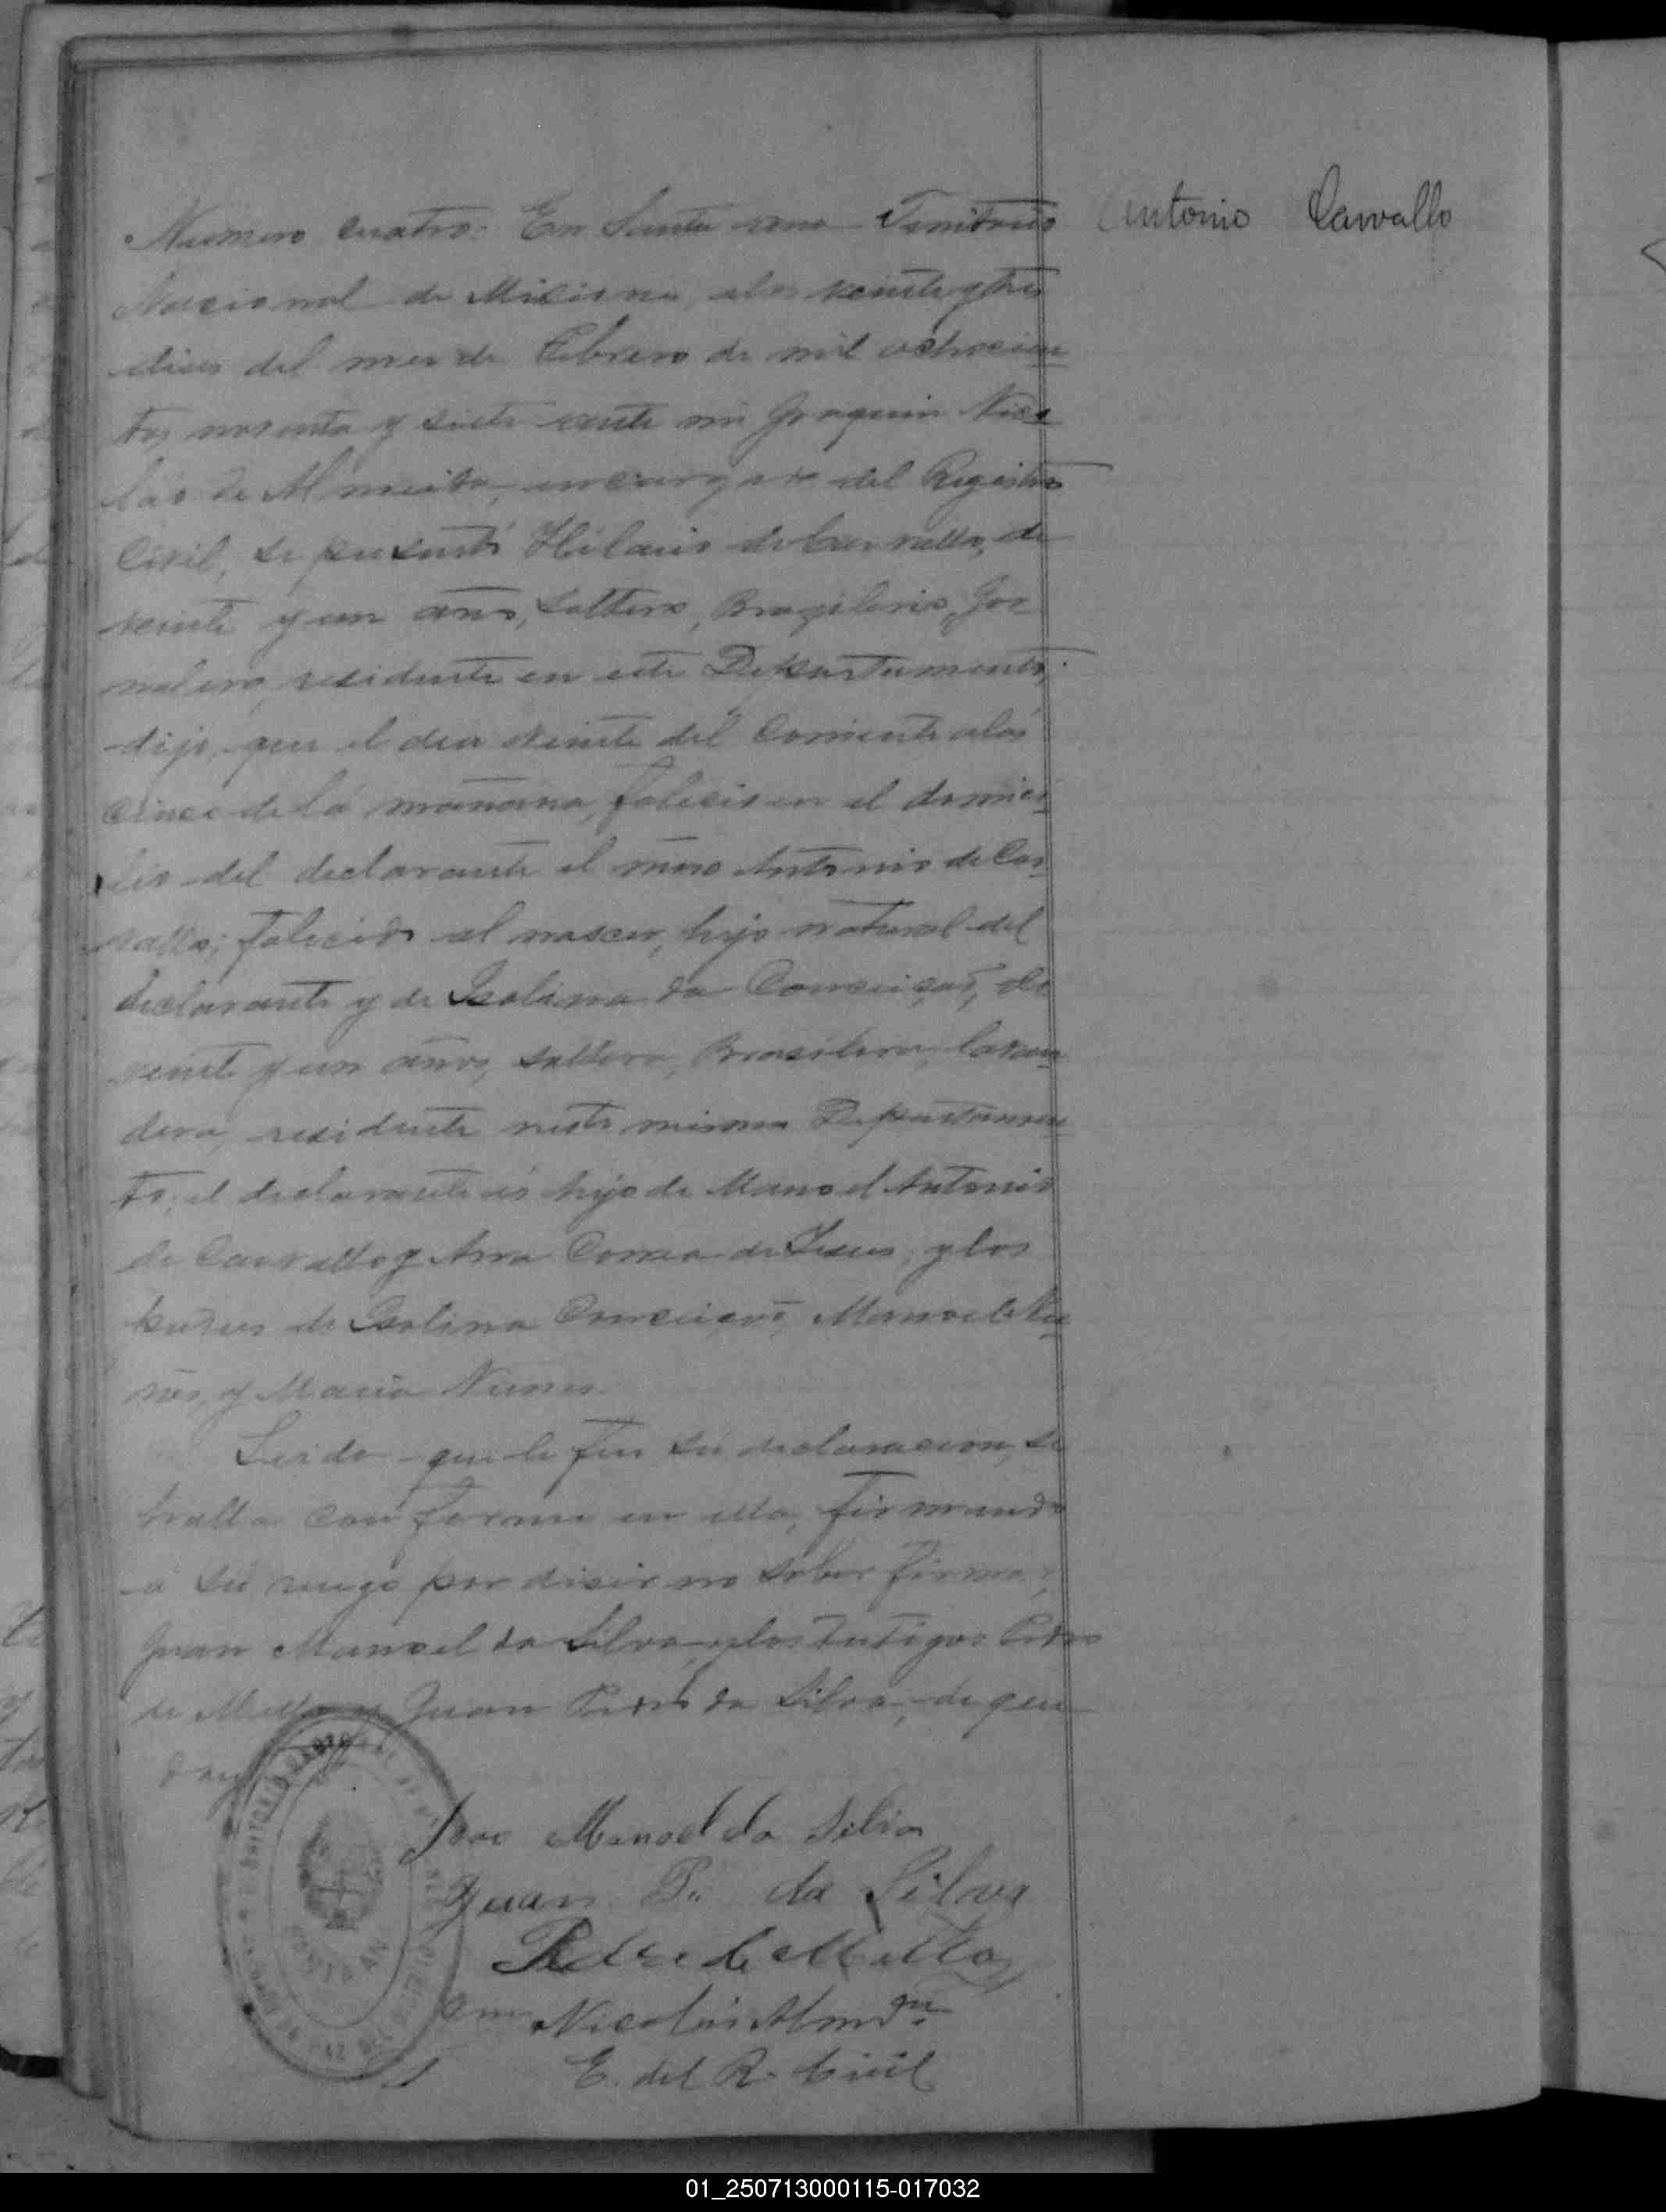 Antonio Carvallo
Numero cuatro: En Santa Ana Territorio
Nacional de Misiones, alos veinte y tres
dias del mes de Febrero de mil ochocien
tos noventa y siete ante mi Joaquin Nico
lás de Almeida, encargado del Registro
Civil, se presentó Hilario de Carvallo, de
veinte y un años, Soltero, Brazilerio, Jor
nalero, residente en este Departamento,
dijo, que el dia veinte del Corriente alas
cinco de lá mañana, falecio en el domici
lio del declarante el niño Antonio de Car
vallo; falecido al nascer, hijo natural del
declarante y de Isolina da Conceiçaõ, de
veinte y un años, soltera, Brasilera, lavan
dera, residente neste mismo Departamen
to, el declarante és hijo de Manoel Antonio
de Carvallo y Ana Correa de Jesus, y los
padres de Isolina Conceiçaõ, Manoel Nu
nes, y Maria Nunes.
Leida que le fue su declaracion, se
halla conforme en ella, firmando
á su ruego por dicir no saber firmar,
Juan Manoel da Silva, y los testigos Pedro
de Mello y Juan Pedro da Silva, de que
doy
Joao Manoel da Silva
Juan P. da Silva
Pedro de Mello
Nicolás Almda
E. del R. Civil
SANTA ANA
01_250713000115-017032